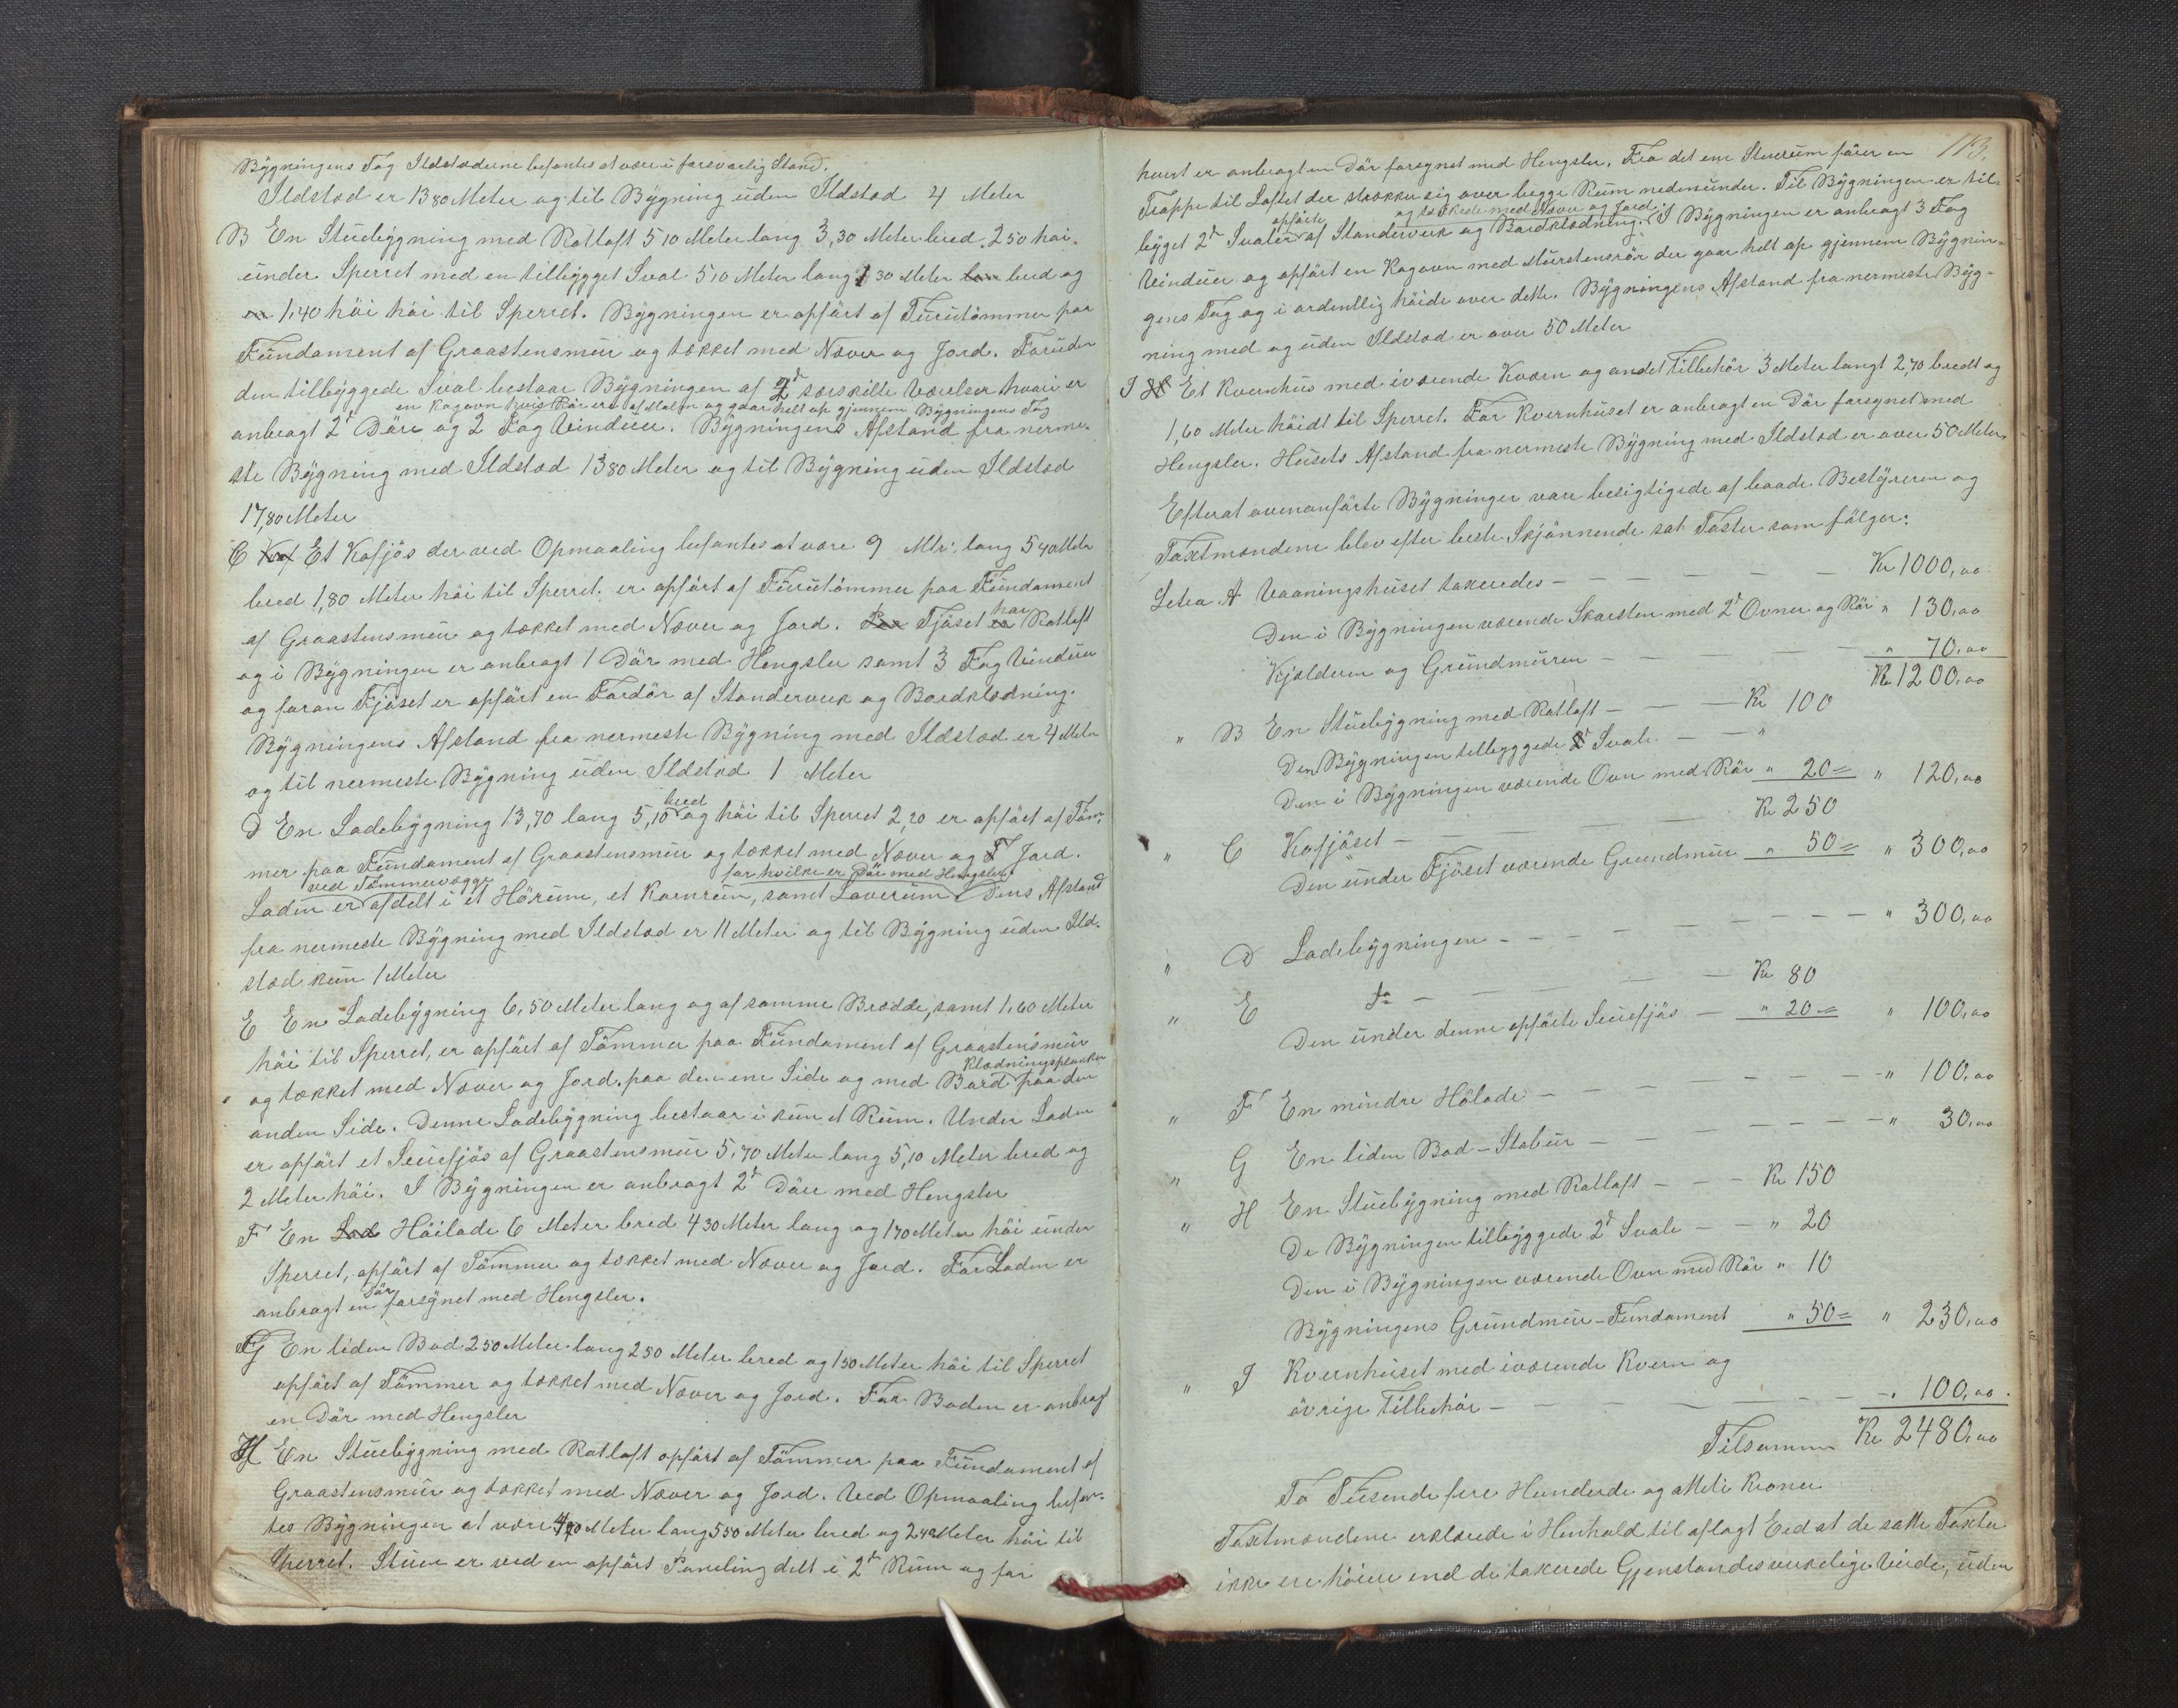 Bygningens Tag Ildstæderne befantes at være i forsvarlig Stand.
Ildsted er 13 80 Meter og til Bygning uden Ildsted 4 Meter
B En Stuebygning med Rotloft 5 10 Meter lang 3,30 Meter bred 2 50 høi
under Sperret med en tilbygget Sval 5 10 Meter lang 1 30 Meter bred og
1,40 høi høi til Sperret. Bygningen er opført af Furutømmer paa
Fundament af Graastensmur og tækket med Næver og Jord. Foruden
den tilbyggede Sval bestaar Bygningen af 2de særskilte Værelser hvori er
en Kogovn hvis Rør er af Malm og gaar helt op gjennem Bygningens Tag
anbragt 2de Døre og 2 Fag Vinduer. Bygningens Afstand fra nerme-
ste Bygning med Ildsted 13 80 Meter og til Bygning uden Ildsted
17,80 Meter
C Et Kofjøs der ved Opmaaling befantes at være 9 Mtr. lang 5 40 Meter
bred 1,80 Meter høi til Sperret er opført af Furutømmer paa Fundament
af Graastensmur og tækket med Næver og Jord. Fjøset har Rotloft
og i Bygningen er anbragt 1 Dør med Hengsler samt 3 Fag Vinduer
og foran Fjøset er opført en Fordør af Standerverk og Bordklædning.
Bygningens Afstand fra nermeste Bygning med Ildsted er 4 Meter
og til nermeste Bygning uden Ildsted 1 Meter
D En Ladebygning 13,70 lang 5,10 bred og høi til Sperret 2,20 er opført af Tøm-
mer paa Fundament af Graastensmur og tækket med Næver og Jord.
ved Tømmervægge for hvilke er Dør med Hengsler
Laden er afdelt i et Hørum, et Kornrum, samt Laverum. Dens Afstand
fra nermeste Bygning med Ildsted er 11 Meter og til Bygning uden Ild-
sted kun 1 Meter
E En Ladebygning 6,50 Meter lang og af samme Bredde, samt 1,60 Meter
høi til Sperret, er opført af Tømmer paa Fundament af Graastensmur
Klædningsplanker
og tækket med Næver og Jord paa den ene Side og med Bord paa den
anden Side. Denne Ladebygning bestaar i kun et Rum. Under Laden
er opført et Seuefjøs af Graastensmur 5,70 Meter lang 5,10 Meter bred og
2 Meter høi. I Bygningen er anbragt 2de Døre med Hengsler
F En Lad Høilade 6 Meter bred 4 30 Meter lang og 1 70 Meter høi under
Sperret, opført af Tømmer og tækket med Næver og Jord. For Laden er
anbragt en Dør forsynet med Hengsler.
G En liden Bod 2 50 Meter lang 2 50 Meter bred og 1 50 Meter høi til Sperret
opført af Tømmer og tækket med Næver og Jord. For Boden er anbragt
en Dør med Hengsler
H En Stuebygning med Rotloft opført af Tømmer paa Fundament af
Graastensmur og tækket med Næver og Jord. Ved Opmaaling befan-
tes Bygningen at være Meter lang 5 50 Meter bred og 2 40 Meter høi til
Sperret. Stuen er ved en opført Paneling delt i 2de Rum og for
113.
hvert er anbragt en Dør forsynet med Hengsler. Fra det ene Stuerum fører en
Trappe til Loftet der strækker sig over begge Rum nedenunder. Til Bygningen er til-
opførte og tækkede med Næver og Jord.
bygget 2de Svaler af Standerverk og Bordklædning. I Bygningen er anbragt 3 Fag
Vinduer og opført en Kogovn med Murstensrør der gaar helt op gjennem Bygnin-
gens Tag og i ordentlig høide over dette. Bygningens Afstand fra nermeste Byg-
ning med og uden Ildsted er over 50 Meter
I Et Kvernhus med iværende Kværn og andet Tilbehør 3 Meter langt 2,70 bredt og
1,60 Meter høidt til Sperret. For Kvernhuset er anbragt en Dør forsynet med
Hengsler. Husets Afstand fra nermeste Bygning med Ildsted er over 50 Meter.
Efterat ovenanførte Bygninger vare besigtigede af baade Bestyreren og
Taxtmændene blev efter beste Skjønnende sat Taxter som følger:
Letra A Vaaningshuset taxeredes — — — Kr 1000,00
Den i Bygningen værende Skorsten med 2de Ovner og Rør " 130,00
Kjelderen og Grundmuren — — — " 70,00
Kr 1200,00
" B En Stuebygning med Rotloft — — Kr 100
Den Bygningen tilbyggede Sval — — "
Den i Bygningen værende Ovn med Rør " 20 = " 120,00
" C Kofjøset — — — Kr 250
Den under Fjøset værende Grundmur " 50 = " 300,00
" D Ladebygningen — — — " 300,00
" E do — — — Kr 80
Den under denne opførte Seuefjøs — " 20 = " 100,00
" F En mindre Hølade — — — " 100,00
" G En liden Bod - Stabur — — — " 30,00
" H En Stuebygning med Rotloft — — Kr 150
De Bygningen tilbyggede 2de Svale — — " 20
Den i Bygningen værende Ovn med Rør " 10
Bygningens Grundmur - Fundament " 50 = " 230,00
" I Kvernhuset med iværende Kvern og
øvrige Tilbehør — — — " 100,00
Tilsammen Kr 2480,00
To Tusende fire Hunderde og otteti Kroner
Taxtmændene erklærede i Henhold til aflagt Eed at de satte Taxter
ikke ere høiere end de taxerede Gjenstandes verkelige Værde, uden